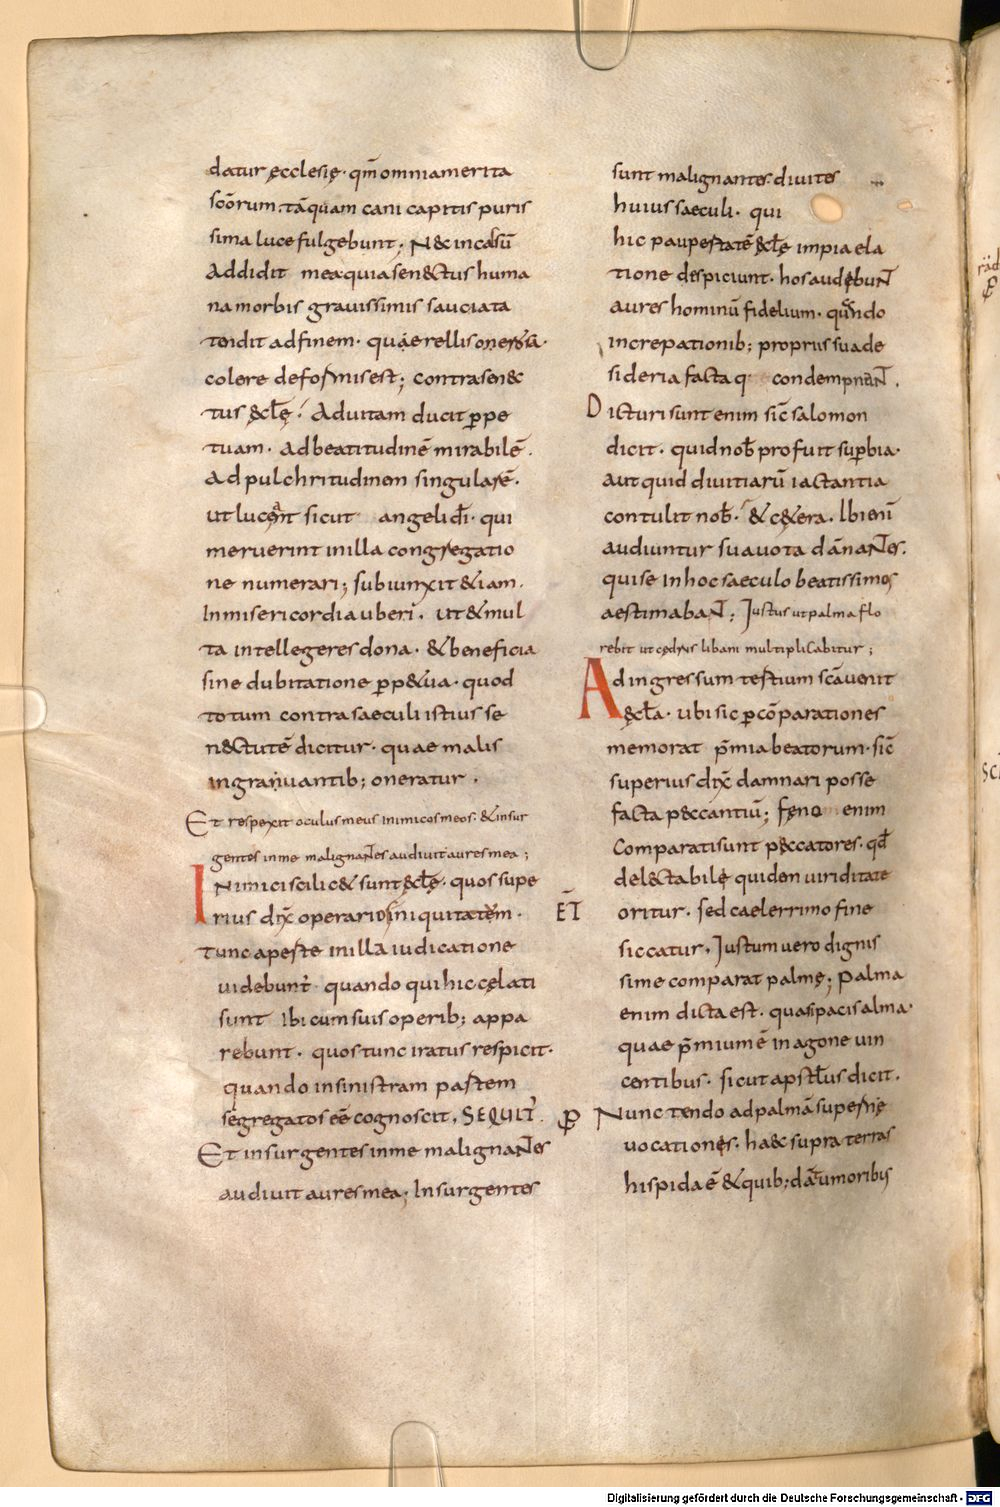 datur ęcclesię · qm̄ omnia merita
scōrum · tāquam cani capitis puris
sima luce fulgebunt ; N& incassū
Addidit mea quia sen&ctus huma
na morbis gravissimis sauciata
tendit ad finem · quae rellis
colere deformis est ; contra sen&c
tus ęctę · Ad uitam ducit ꝑpe
tuam · Ad beatitudinē mirabilē ·
Ad pulchritudinem singularē ·
ut lucent sicut angeli dī · qui
meruerint in illa congregatio
ne numerari ; subiunxit &iam ·
In misericordia uberi · ut & mul
ta intellegeres dona · & beneficia
sine dubitatione ꝑp&ua · quod
totum contra saeculi istius se
n&ctutē dicitur · quae malis
ingrauantib; oneratur ·
Et respexit oculus meus inimicos meos · & insur
gentes in me malignantes audiuit aures mea ;
Inimici scilic& sunt ęctę · quos supe
rius dix̄ operarios iniquitatem ·
Tunc aperte in illa iudicatione
uidebunt̄ quando qui hic cęlati
sunt ibi cum suis operib; appa
rebunt · quos tunc iratus respicit ·
quando in sinistram partem
segregatos eē cognoscit · SEQUIT̄ ·
Et insurgentes in me malignantes
audiuit aures mea ; Insurgentes
sunt malignantes · diuites
huius saeculi · qui
hic paupertatē ęctę impia ela
tione despiciunt · hos audębunt
aures hominū fidelium · quando
increpationib; propriis sua de
sideria facta q condempnant ·
Dicturi sunt enim sic̄ salomon
dicit · quid nob̄ profuit suꝑbia ·
aut quid diuitiarū iactantia
contulit nob̄ · & c&era · Ibi enī
audiuntur sua uota dānantes ·
qui se in hoc saeculo beatissimos
aestimabant ; Justus ut palma flo
rebit ut cędrus libani multiplicabitur ;
Ad ingressum tertium scā uenit
ęcta · ubi sic ꝑ cōparationes
memorat p̄mia beatorum · sic̄
superius dix̄ damnari posse
facta p&ccantiū ; Fęno enim
Comparati sunt p&ccatores · qd̄
del&ctabilę quidem uiriditate
ET̄ oritur · sed caelerrimo fine
siccatur · Justum uero dignis
sime comparat palmę ; Palma
enim dicta est · quasi pacis alma ·
quae p̄mium ē in agone uin
centibus · sicut apstlus dicit ·
Nunc tendo ad palmā supernę
uocationes · haec supra terras
hispida ē & quib; dā tumoribus
Digitalisierung gefördert durch die Deutsche Forschungsgemeinschaft - DFG